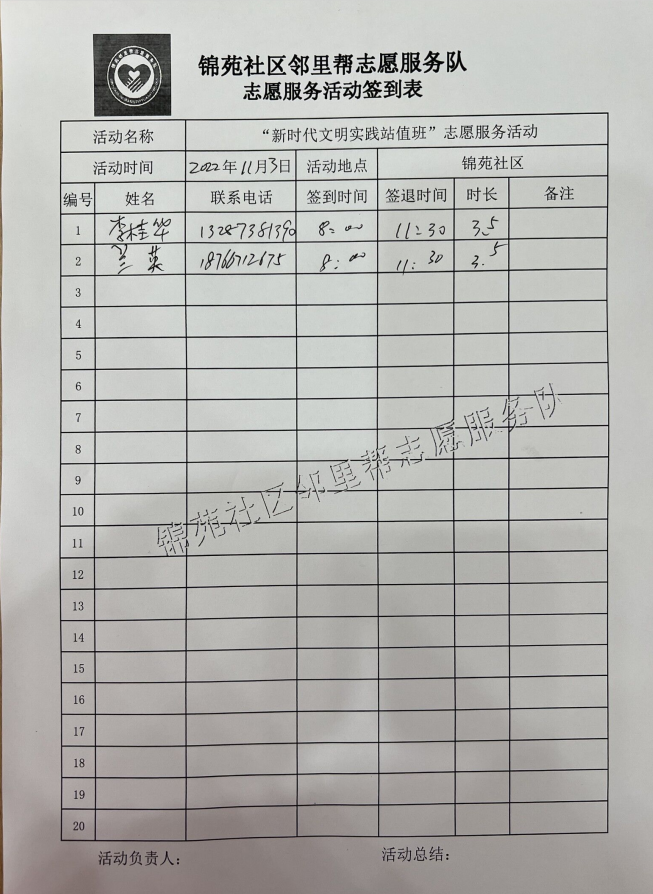 锦苑社区邻里帮志愿服务队
志愿服务活动签到表
活动名称 “新时代文明实践站值班”志愿服务活动
活动时间 2022年11月3日 活动地点 锦苑社区
编号 姓名 联系电话 签到时间 签退时间 时长 备注
1 李桂华 13287381390 8:00 11:30 3.5
2 兰英 18766712675 8:00 11:30 3.5
3
4
5
6
7
8
9
10
11
12
13
14
15
16
17
18
19
20
锦苑社区邻里帮志愿服务队
活动负责人: 活动总结: